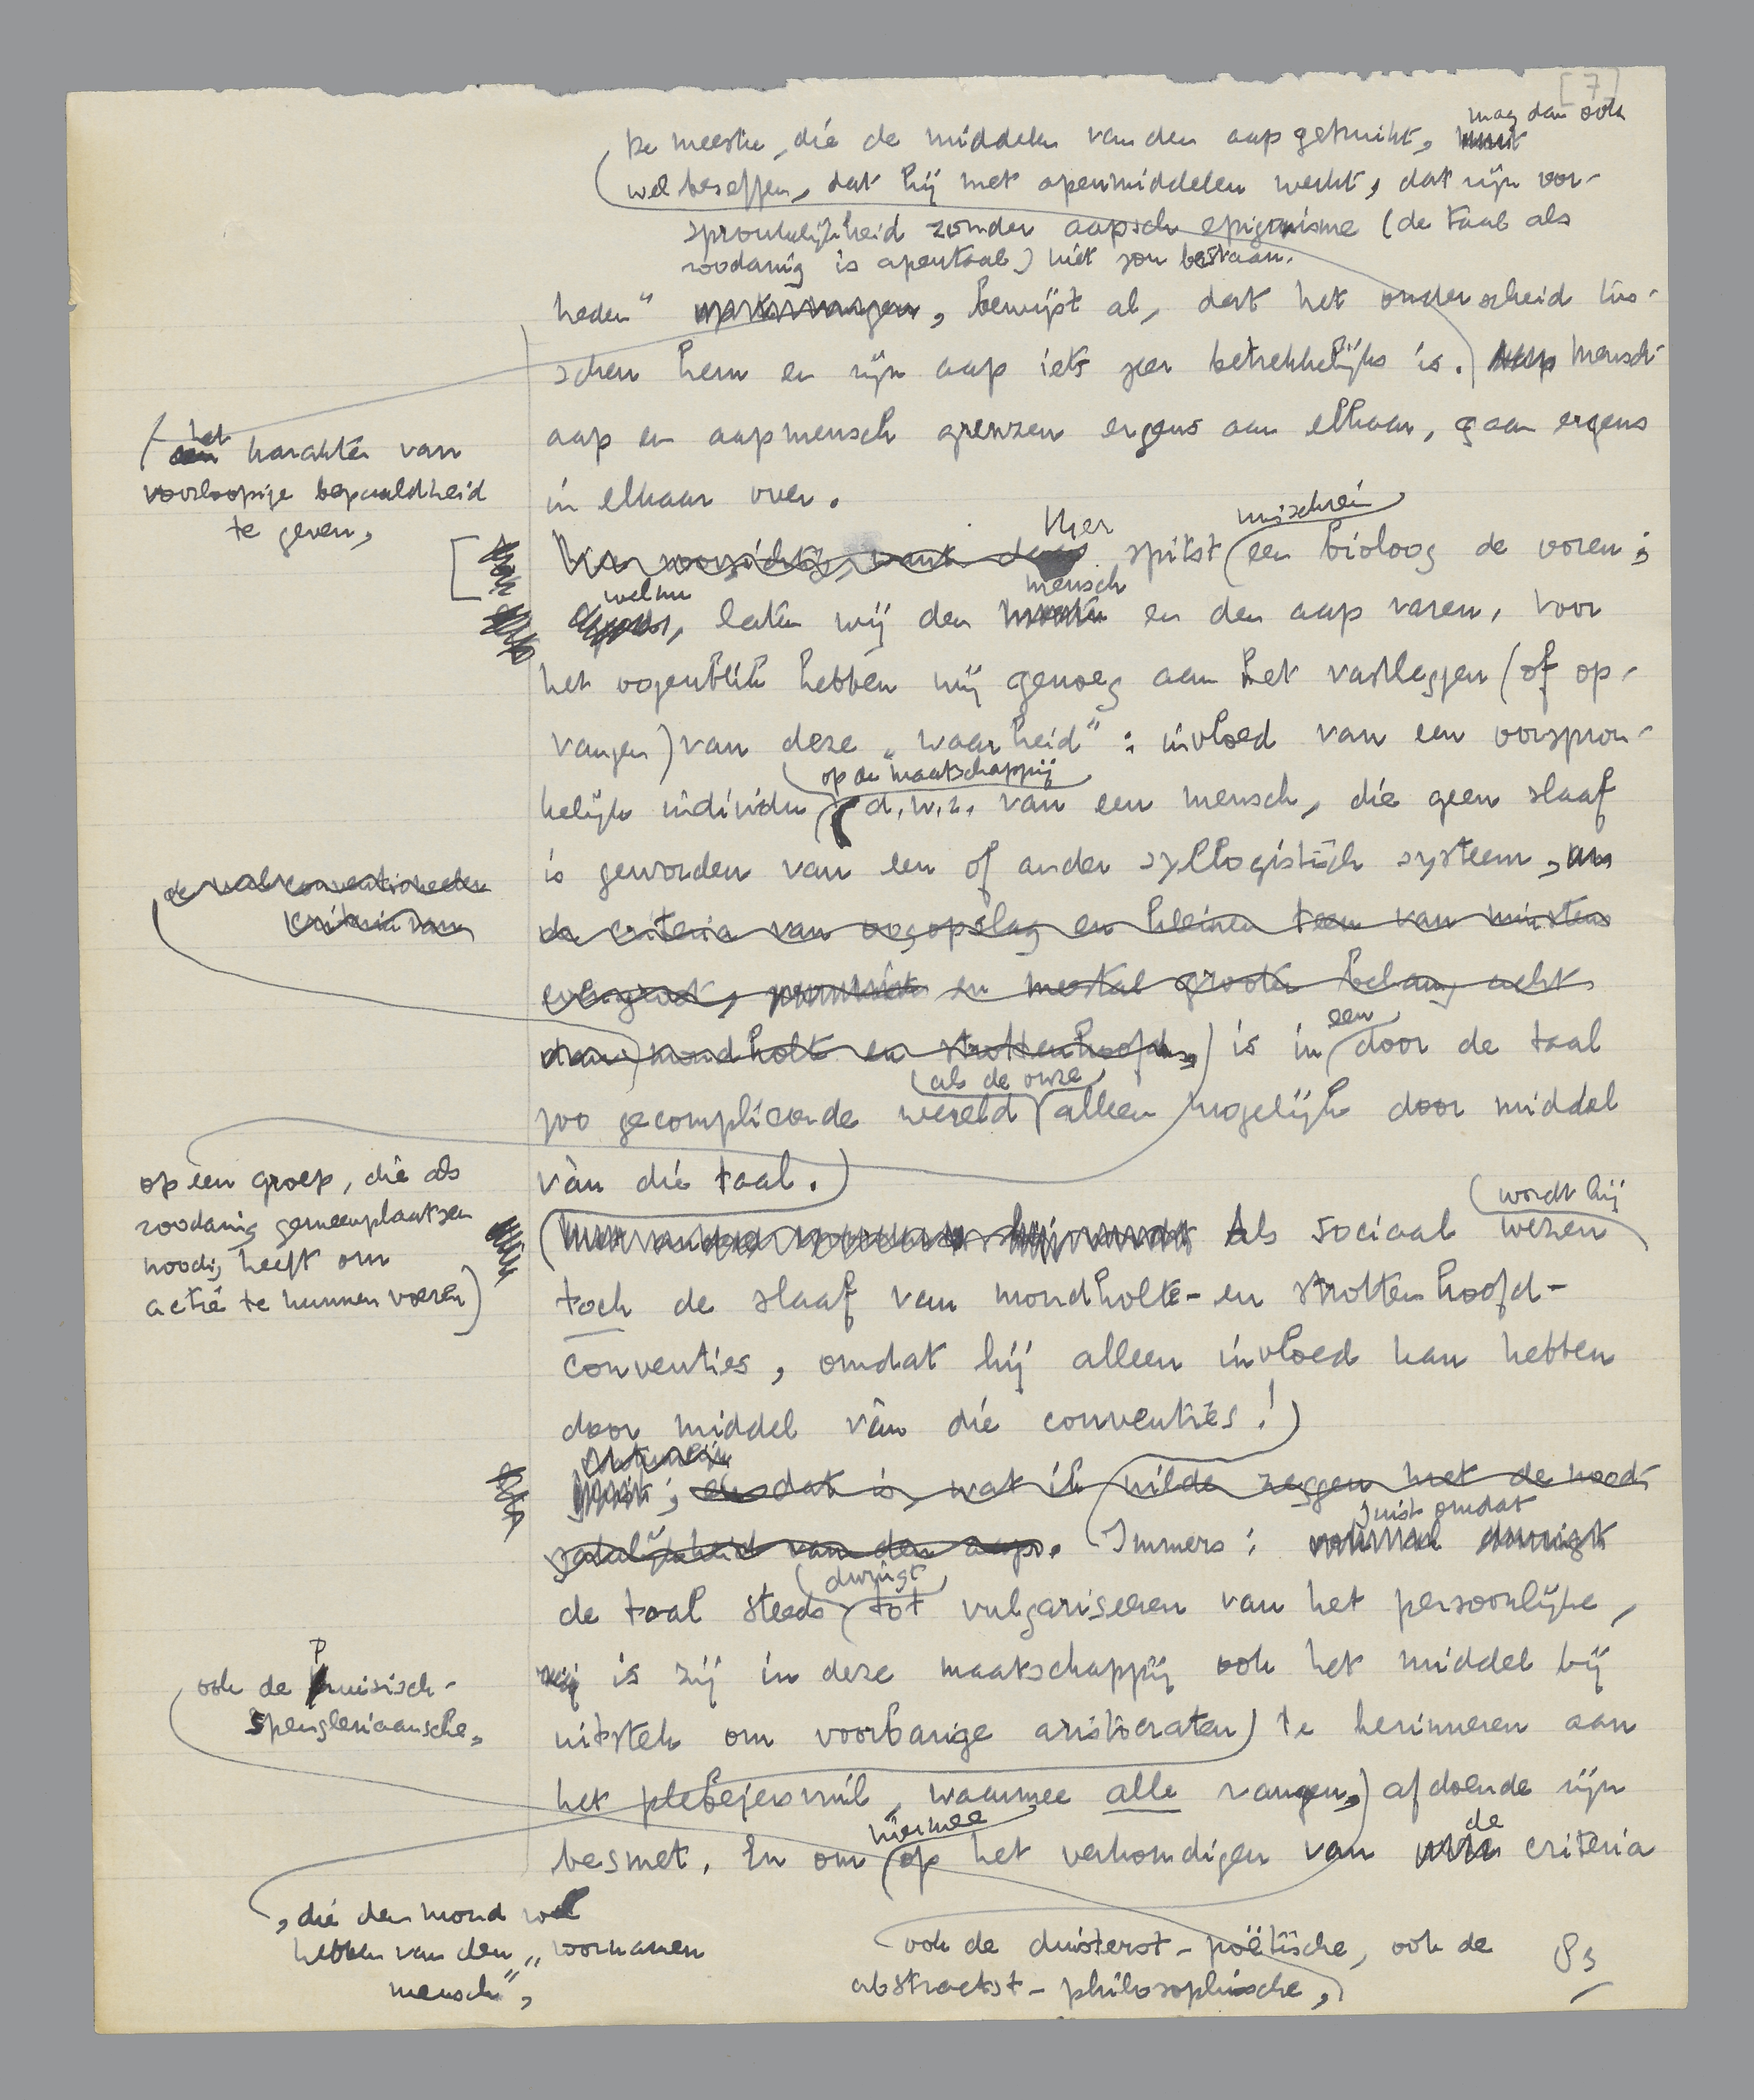 [7]
mag dan ook
De meester, die de middelen van den aap gebruikt,
wel beseffen, dat hij met apenmiddelen werkt, dat zijn oor-
spronkelijkheid zonder aapsch epigonisme (de taal als
zoodanig is apentaal) niet zou bestaan.
heden", bewijst al, dat het onderscheid tus-
schen hem en zijn aap iets zeer betrekkelijks is. Mensch-
aap en aapmensch grenzen ergens aan elkaar, gaan ergens
in elkaar over.
het
een karakter van
voorloopige bepaaldheid
te geven,
Hier misschien
Wees voorzichtig, want daar spitst een bioloog de ooren;
welnu mensch
laten wij den meester en den aap varen, voor
het oogenblik hebben wij genoeg aan het vastleggen (of op-
vangen) van deze „waarheid": invloed van een oorspron-
op de maatschappij
kelijk individu, d.w.z. van een mensch, die geen slaaf
is geworden van een of ander syllogistisch systeem,
de criteria van oogopslag en kleinen teen van minstens
evengroot, en meestal grooter belang acht
een
dan mondholte en strottenhoofd, is in door de taal
als de onze
zoo gecompliceerde wereld alleen mogelijk door middel
ván die taal.)
criteria van
op een groep, die als
zoodanig gemeenplaatsen
noodig heeft om
actie te kunnen voeren)
wordt hij
Als sociaal wezen
toch de slaaf van mondholte- en strottenhoofd-
conventies, omdat hij alleen invloed kan hebben
door middel ván die conventies!
Juist; en dat is, wat ik wilde zeggen met de nood-
juist omdat
zakelijkheid van den aap. Immers: dwingt
dwingt
de taal steeds tot vulgariseeren van het persoonlijke,
is zij in deze maatschappij ook het middel bij
uitstek om voorbarige aristocraten te herinneren aan
het plebejersvuil, waarmee alle rangen, afdoende zijn
hiermee de
besmet. En om op het verkondigen van criteria
ook de
Spengleriaansche,
, die den mond vol
hebben van den „voornamen
mensch",
ook de duisterst-poëtische, ook de
abstractst-philosophische,
83